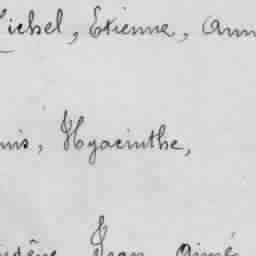 Michel, Etienne, Ann
nis, Hyacinthe,
Jean Aimé